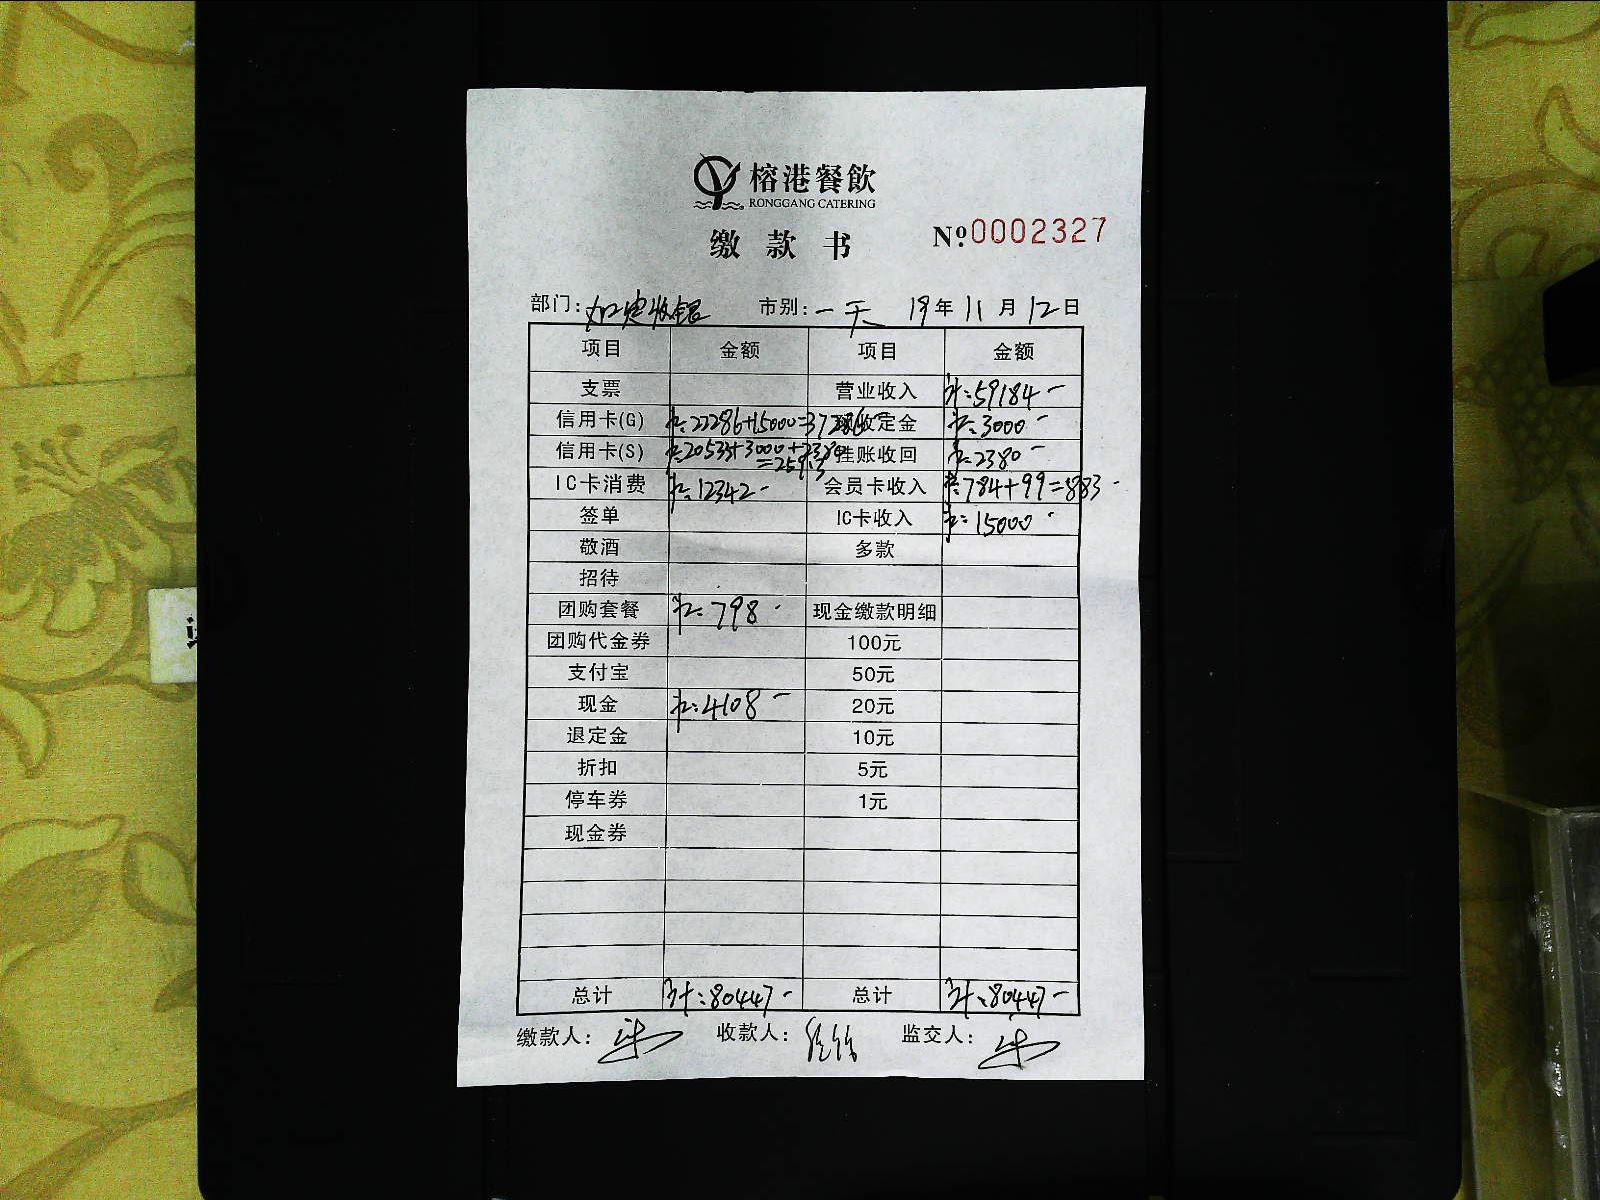 榕港餐飲
RONGGANG CATERING
缴款书
Nº:0002327
部门: 加建收银 市别: 一天 19年11月12日
项目 金额 项目 金额
支票 营业收入 计:59184-
信用卡(G) 22286+15000=37286 预收定金 3000-
信用卡(S) 20533+3000+2380 挂账收回 2380-
=25913
IC卡消费 12342- 会员卡收入 784+99=883-
签单 IC卡收入 15000-
敬酒 多款
招待
团购套餐 798- 现金缴款明细
团购代金券 100元
支付宝 50元
现金 4108- 20元
退定金 10元
折扣 5元
停车券 1元
现金券
总计 计:80447- 总计 计:80447-
缴款人: 收款人: 监交人: